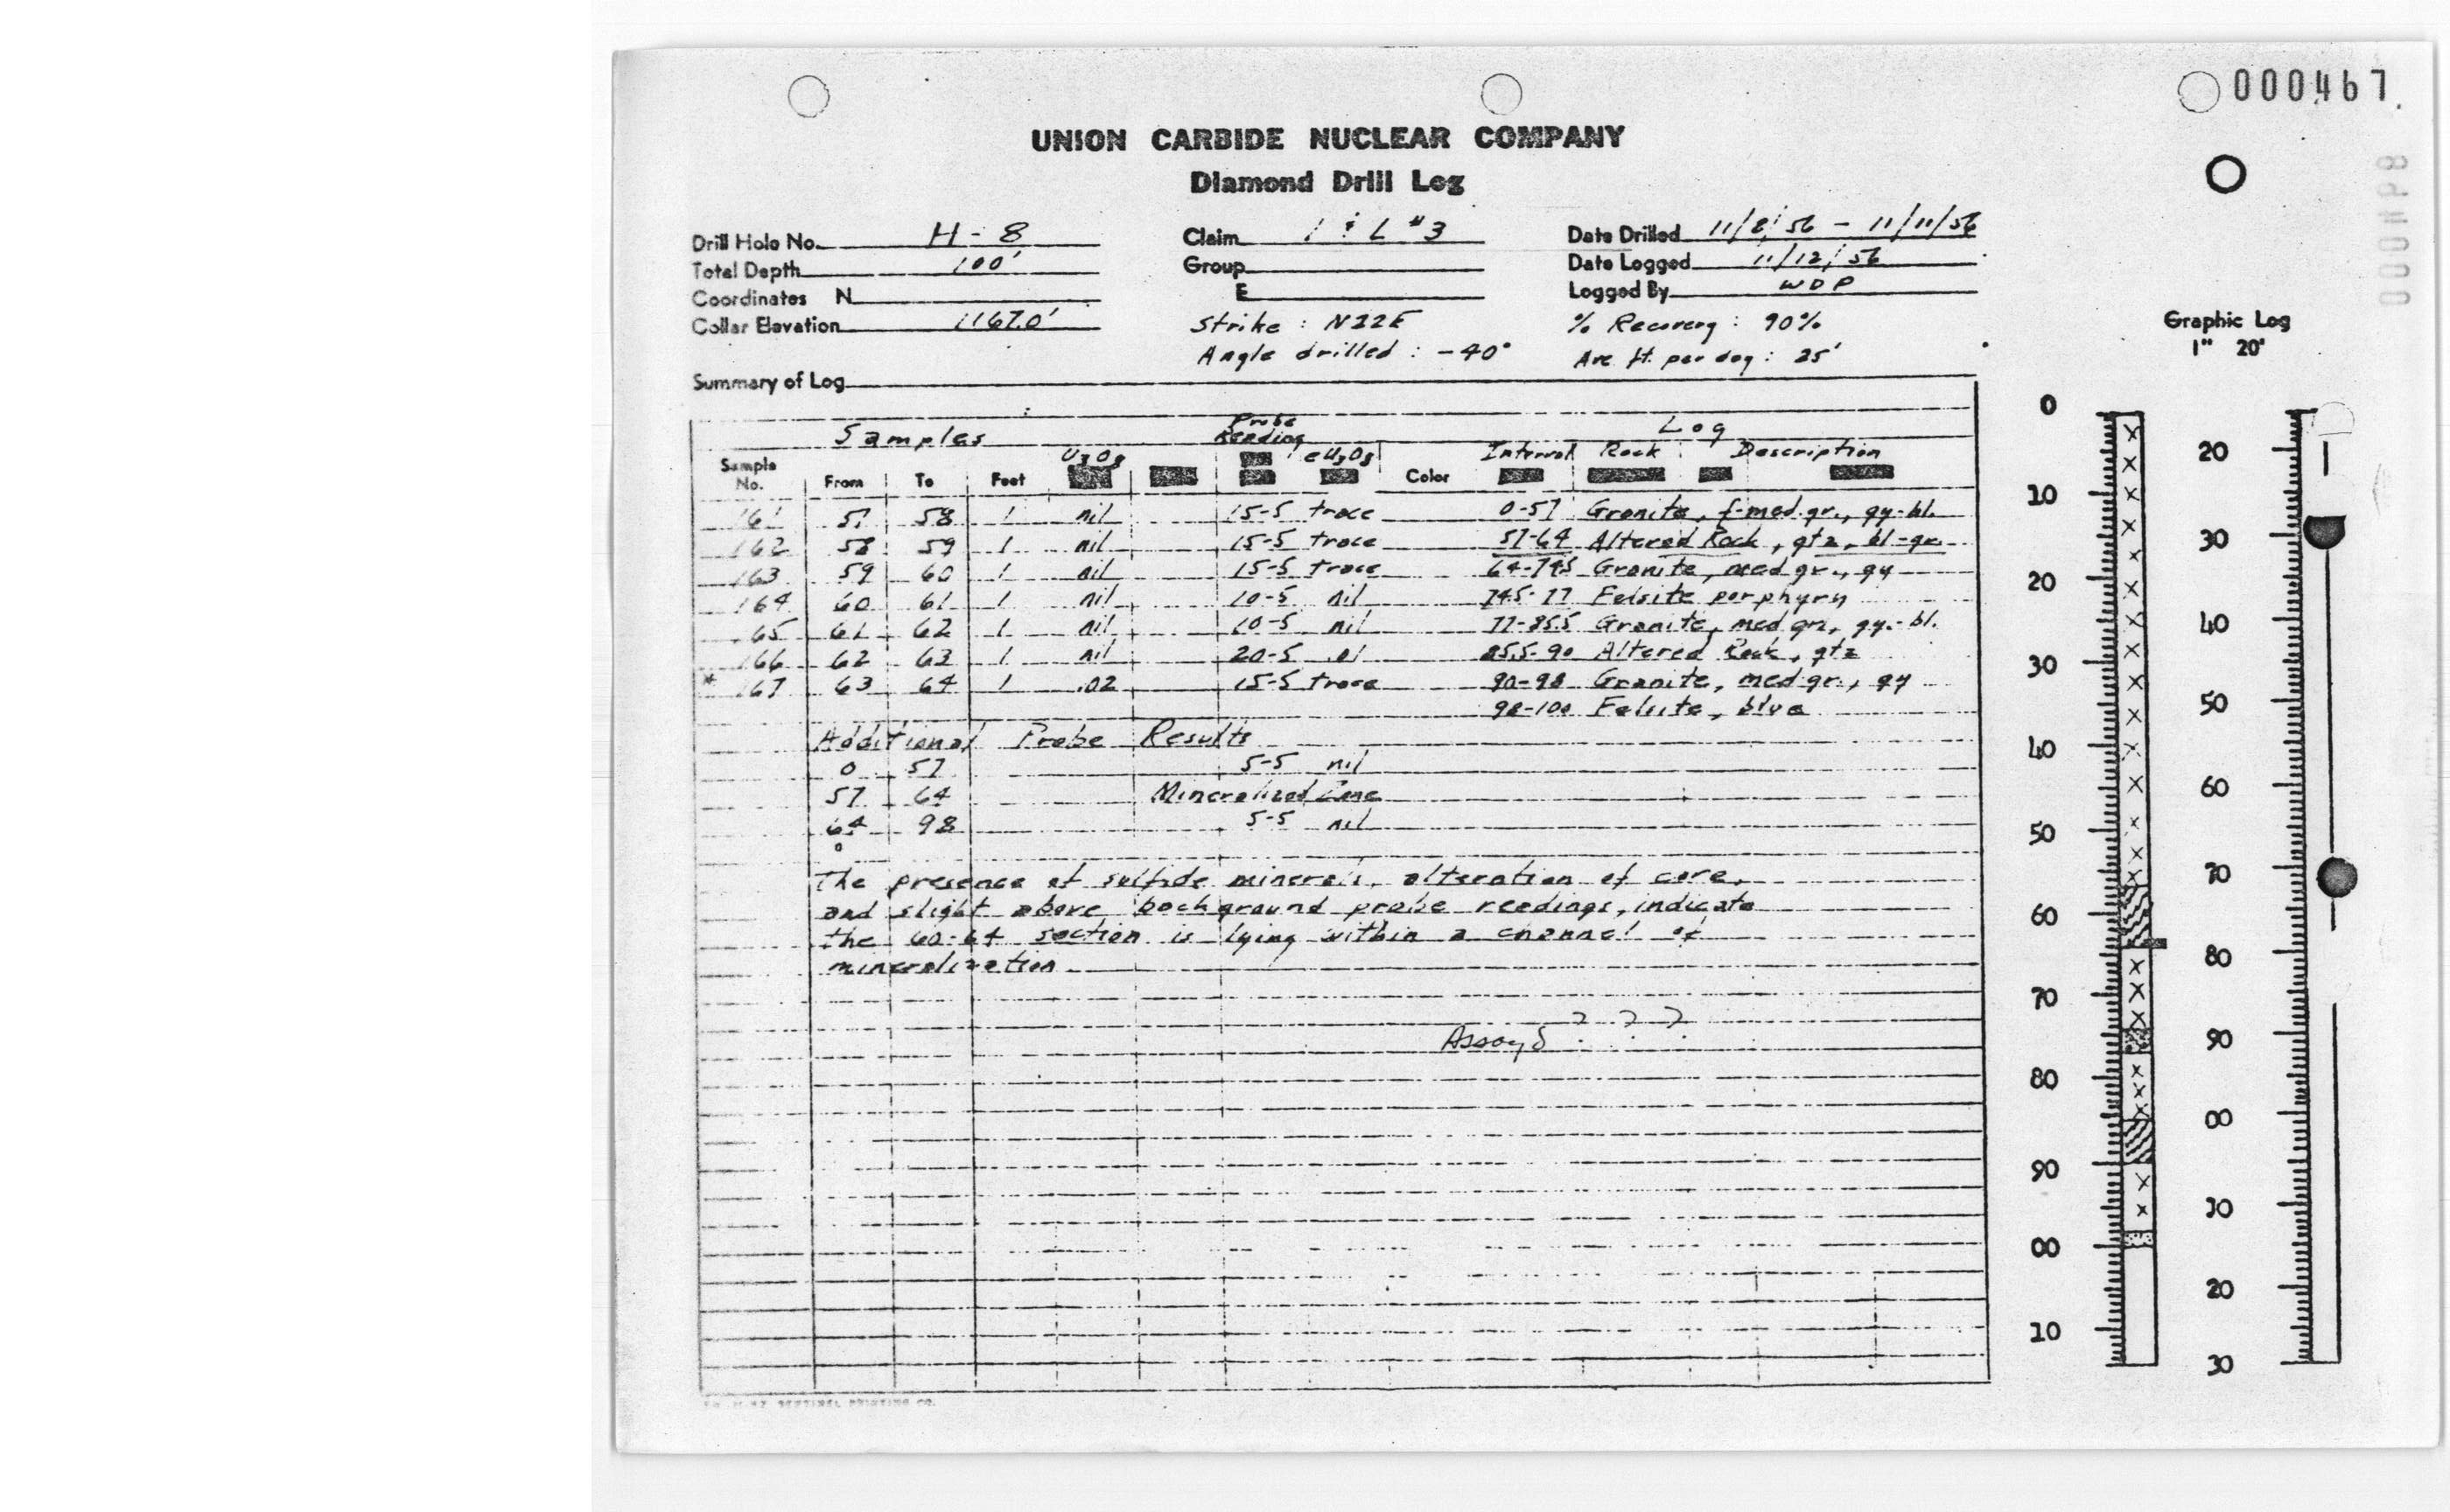 000467
UNION CARBIDE NUCLEAR COMPANY
Diamond Drill Log
Drill Hole No. H-8 Claim 1 & L #3 Date Drilled 11/8/56 - 11/11/56
Total Depth 100' Group Date Logged 11/12/56
Coordinates N E Logged By WDP
Collar Elevation 1167.0' Strike : N22E % Recovery : 90%
Angle drilled : -40° Ave ft. per day : 25'
Summary of Log
Graphic Log
1" 20'
Samples Probe Reading Log
Sample No. From To Feet U3O8 eU3O8 Color Interval Rock Description
161 57 58 1 nil 15-5 trace 0-57 Granite, f-med.gr., gy-bl.
162 58 59 1 nil 15-5 trace 57-64 Altered Rock, qtz, bl-gr.
163 59 60 1 nil 15-5 trace 64-74.5 Granite, med gr., gy
164 60 61 1 nil 10-5 nil 74.5-77 Felsite porphyry
165 61 62 1 nil 10-5 nil 77-85.5 Granite, med gr, gy.-bl.
166 62 63 1 nil 20-5 .01 85.5-90 Altered Rock, qtz
* 167 63 64 1 .02 15-5 trace 90-98 Granite, med gr., gy
98-100 Felsite, blue
Additional Probe Results
0 57 5-5 nil
57 64 Mineralized Zone
64 98 5-5 nil
The presence of sulfide minerals, alteration of core,
and slight above background probe readings, indicate
the 60-64 section is lying within a channel of
mineralization
Assays ? ? ?
0
10
20
30
40
50
60
70
80
90
00
10
20
30
40
50
60
70
80
90
00
10
20
30
SENTINEL PRINTING CO.